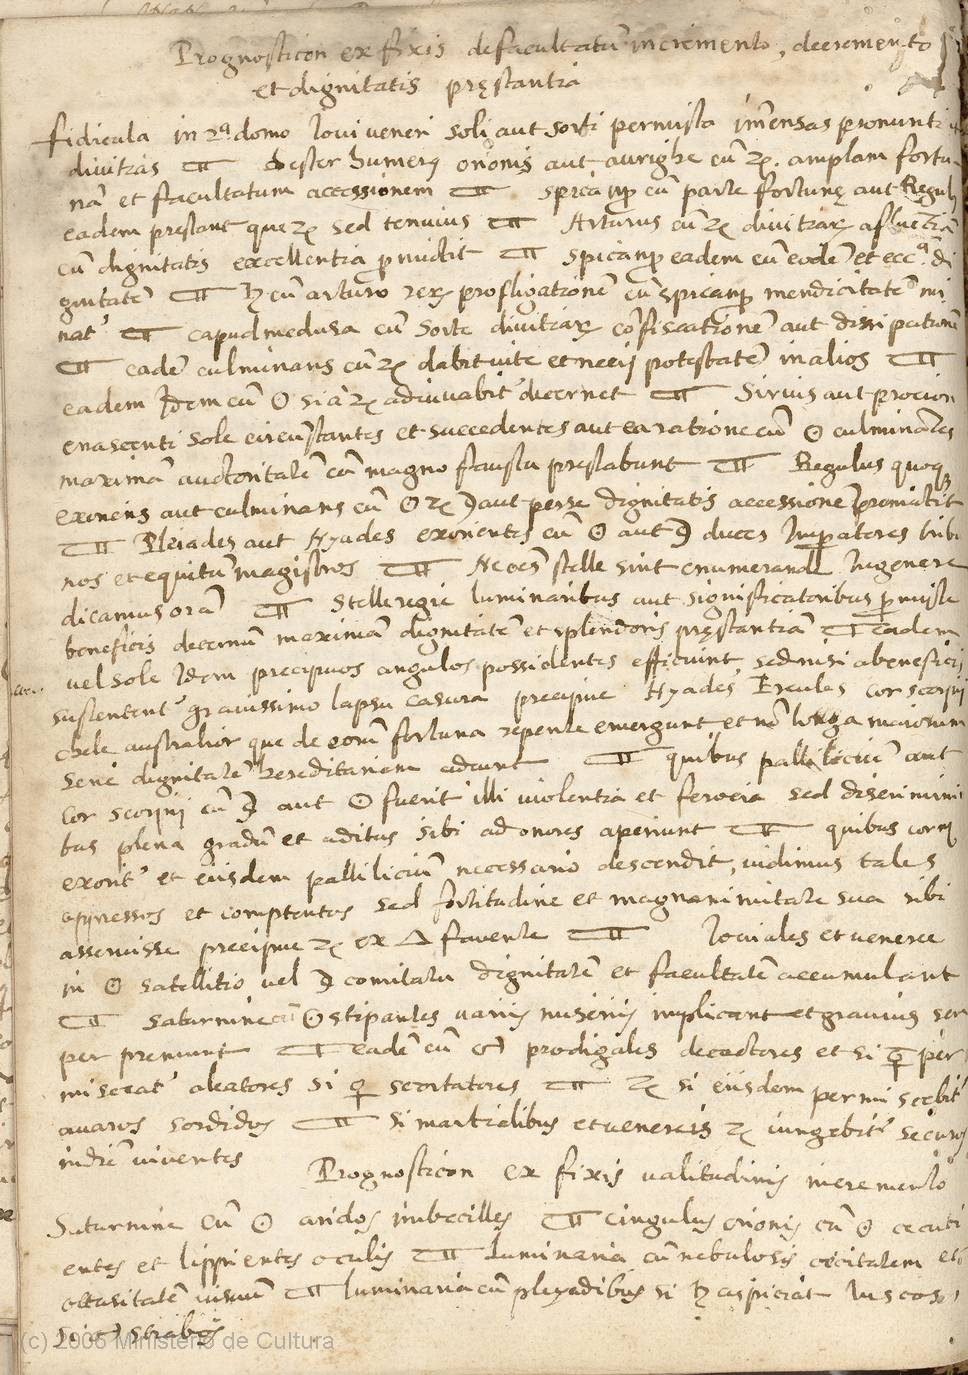 Prognosticon ex fixis de facultatũ incremento, decremento
et dignitatis pręstantia
fidicula in 2ª domo Iovi veneri soli aut sorti permista im̃ensas pronunti
divitias ╥ dexter humerꝰ orionis aut aurighe cũ ♃. amplam fortu
nã et facultatum accessionem ╥ spica ♍ cũ parte fortunę aut Reguli
eadem prestant que ♃ sed tenuius ╥ Arturus cũ ♃ divitiarꝝ afluẽtiã
cũ dignitatis excellentia ꝓmictit ╥ spica ♍ eadem cũ eodẽ et ecc.ª di
gnitatẽ ╥ ♄ cũ arturo rerꝝ profligationẽ cũ spica ♍ mendicitatẽ mi
nat' ╥ capud medusa cũ sorte divitiarꝝ cõfiscationẽ aut dissipationẽ
╥ eadẽ culminans cũ ♃ dabit vite et necij potestatẽ in alios ╥
eadem Idem cũ ☉ si a ♃ adiuvabit' decernet ╥ Sirius aut procion
enascenti sole circũstantes et succedentes aut ea ratione cũ ☉ culminãtes
maximã auctoritatẽ cũ magno faustu prestabunt ╥ Regulus quoqꝫ
exoriens aut culminans cũ ☉ ♃ ☽ aut per se dignitatis accessionẽ promictit
╥ Pleiades aut Hyades exorientes cũ ☉ aut ☽ duces Imperatores tribu
nos et equitũ magistros ╥ Ne oẽs stelle sint enumerande In genere
dicamus orã ╥ Stelle regie luminaribus aut significatoribus ꝑmiste
beneficis decernũt maximã dignitatẽ et splendoris pręstantiã ╥ eadem
vel sole Idem precipuos angulos possidentes efficiunt, sed nisi a beneficij
sustentent' gravissimo lapsu casura precipue Hyades Ercules cor scorpij
chele australior que de eorũ fortuna repente emergunt et nõ longa maiorum
serie dignitatẽ hereditariam adeunt ╥ quibus palliliciũ aut
cor scorpij cũ ☽ aut ☉ fuerit illi violentia et ferocia sed discrimini
bus plena gradũ et aditus sibi ad onores aperiunt ╥ quibus cor ♏
exorit' et eiisdem palliliciũ necessario descendit, vidimus tales
oppressos et comptentos sed fortitudine et magnanimitate sua sibi
asseruisse precipue ♃ ex △ favente ╥ Ioviales et veneree
in ☉ satellitio vel ☽ comitatu dignitatẽ et facultatẽ accumulant
╥ Saturnine cũ ☉ stipantes variis miseriis implicant et gravius sem
per premunt ╥ eadẽ cũ ☍ prodigales decoctores et si ☿ per
misceat' aleatores si ♀ scortatores ╥ ♃ si eiisdem permiscebit'
avaros sordidos ╥ si martialibus et venereis ♃ iungebit' securos
in diẽ viventes
Prognosticon ex fixis valitudinis incremento
Saturnine cũ ☉ aridos imbecilles ╥ cingulus orionis cũ ☉ cecuti
entes et lippientes oculis ╥ luminaria cũ nebulosis cecitatem et
obtusitatẽ visuũ ╥ luminaria cũ pleyadibus si ♄ aspiciat luscos,
si ♂ strabos
(c) 2006 Ministerio de Cultura